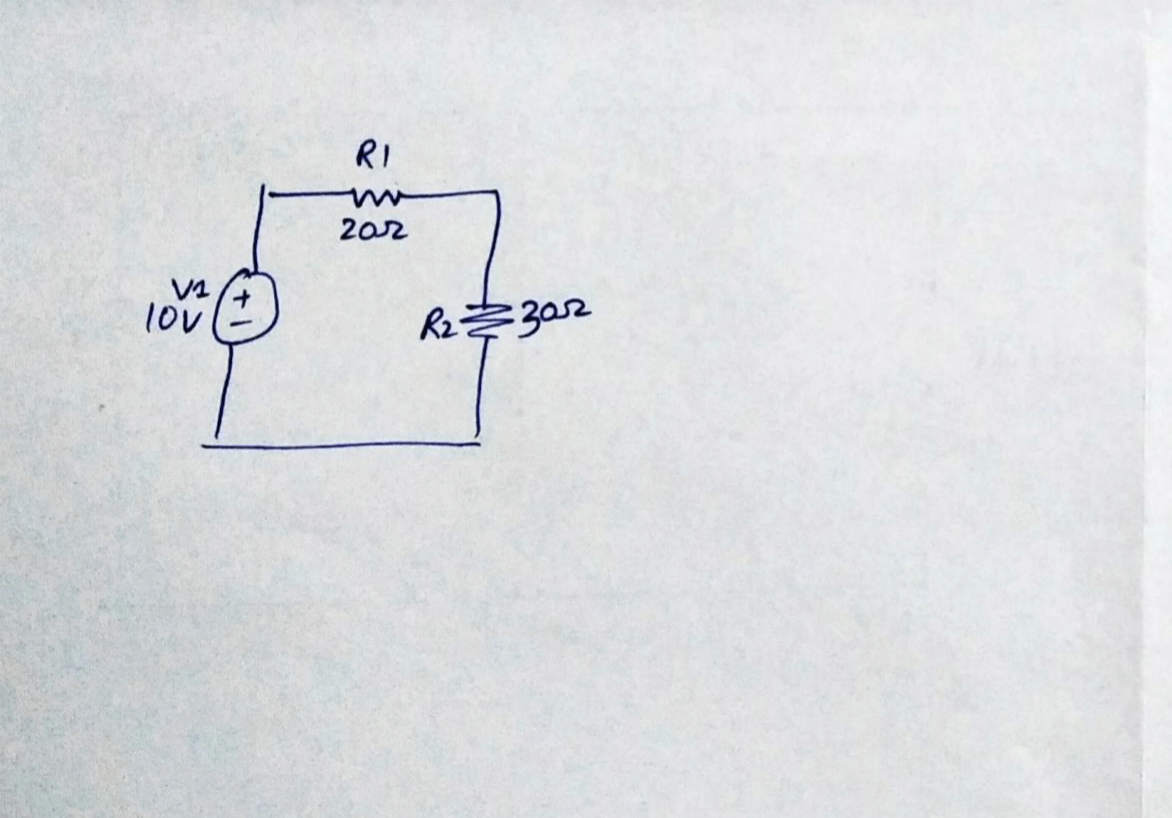 R1
20Ω
V1
10V
+
−
R2
30Ω